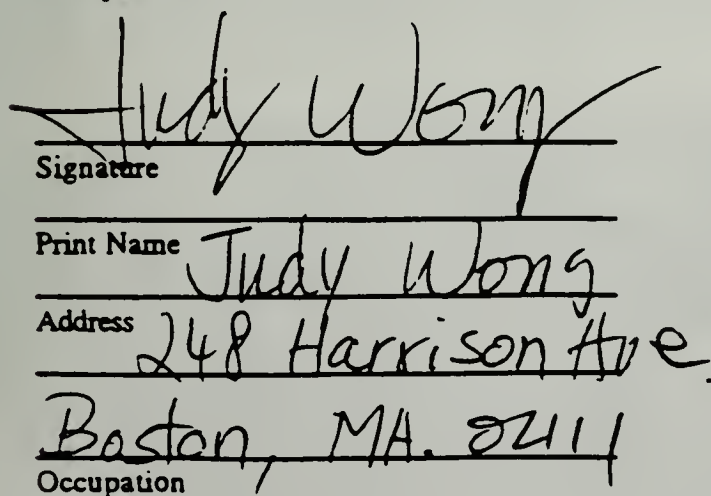 Judy Wong
Signature
Print Name Judy Wong
Address 248 Harrison Ave.
Boston, MA. 02111
Occupation